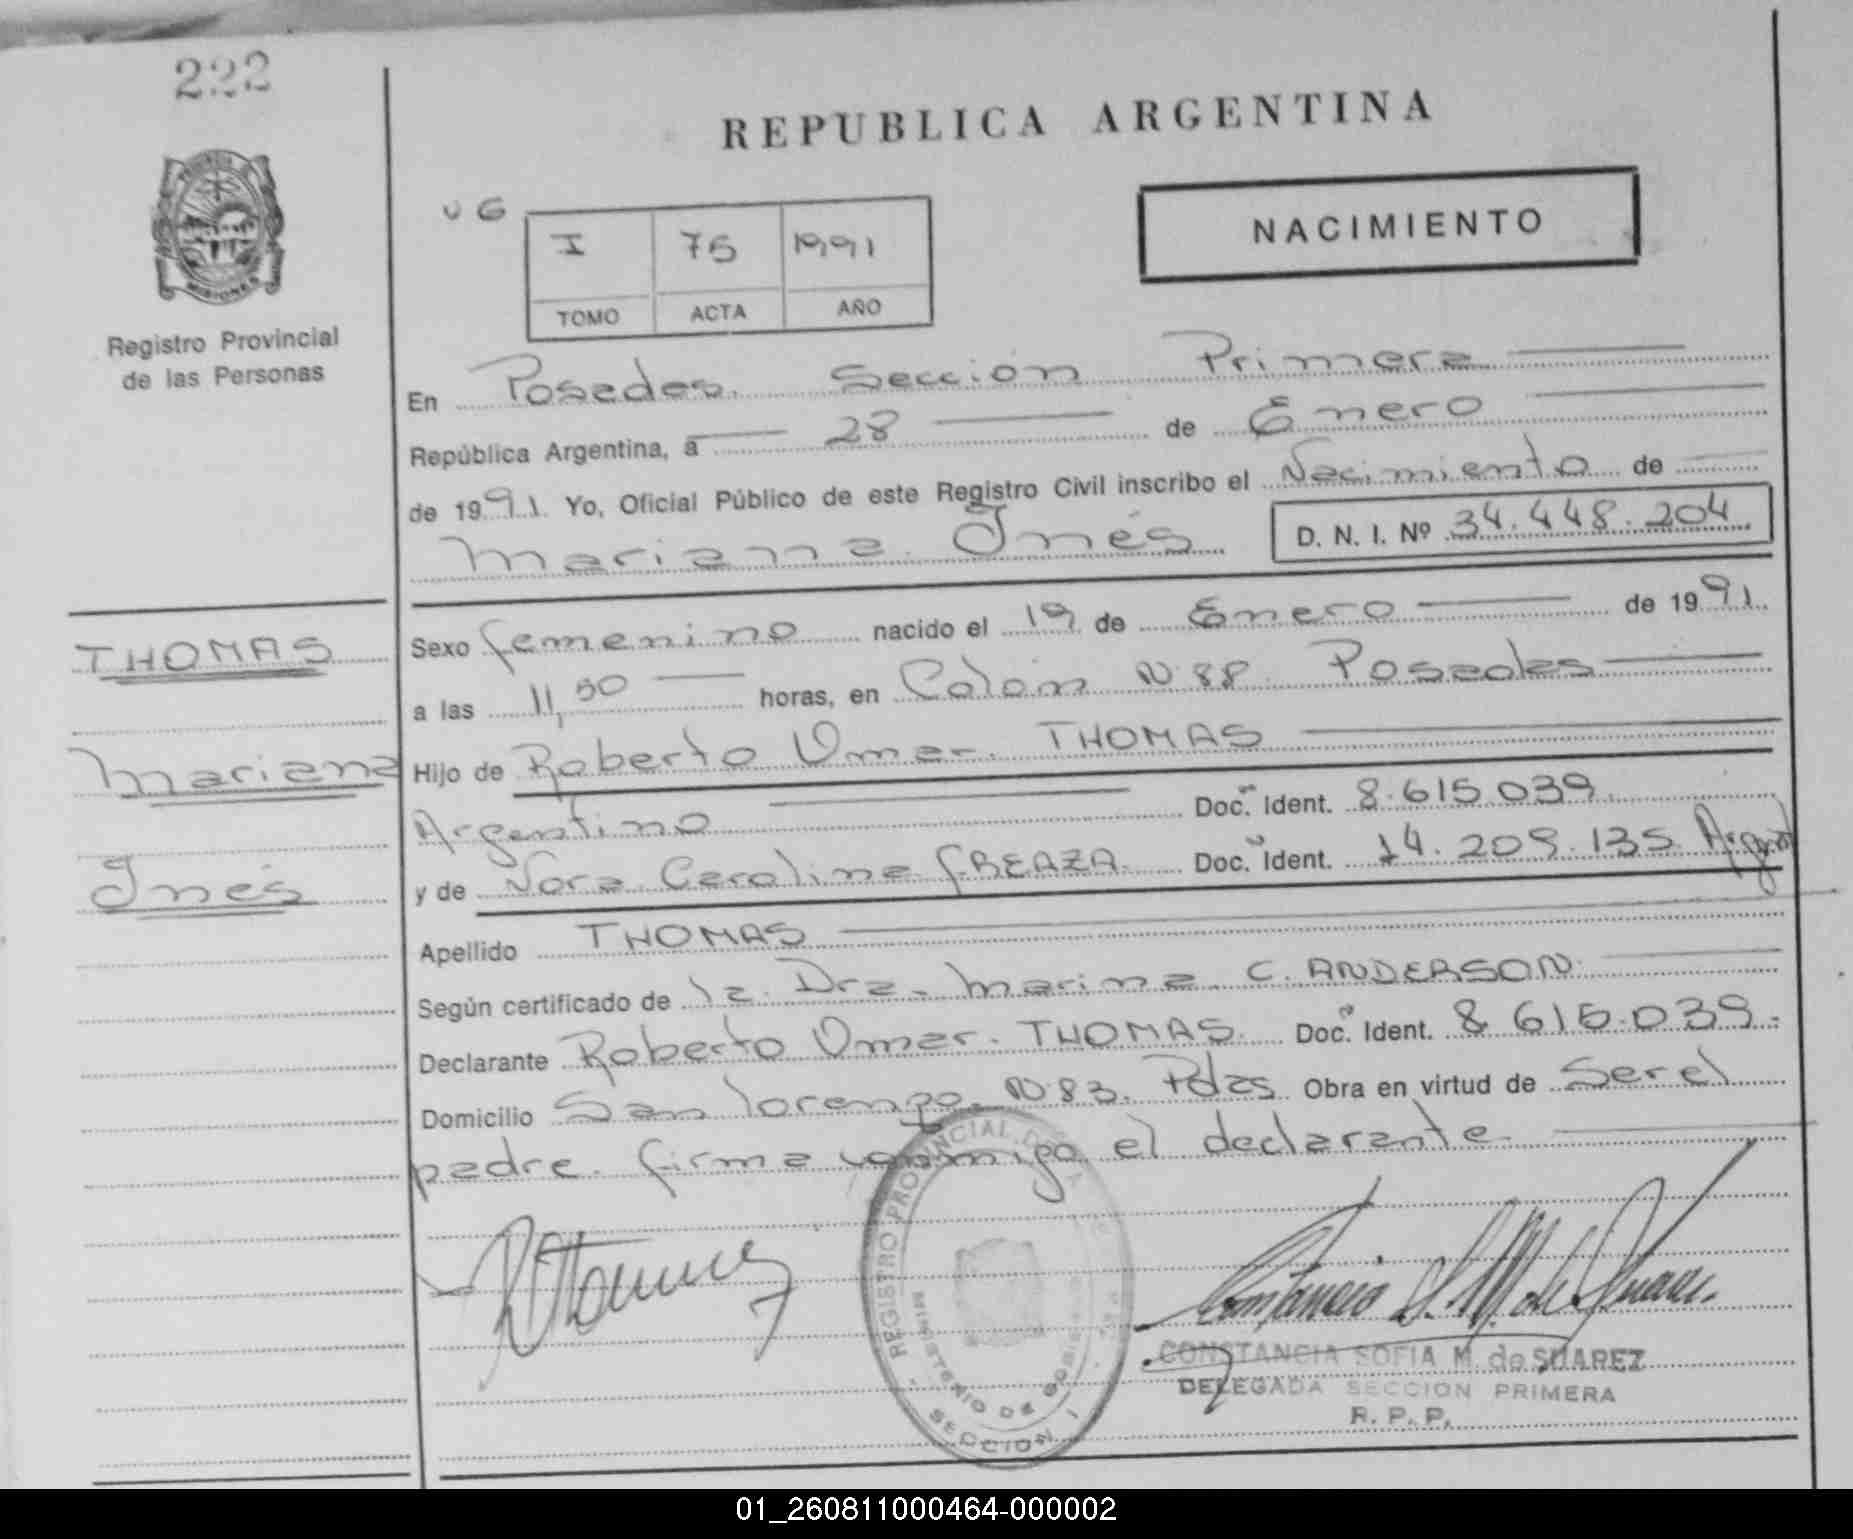 222
REPUBLICA ARGENTINA
MISIONES
Registro Provincial
de las Personas
I 75 1991
TOMO ACTA AÑO
NACIMIENTO
En Posadas. Sección Primera
República Argentina, a 28 de Enero
de 1991. Yo, Oficial Público de este Registro Civil inscribo el Nacimiento de
Mariana Inés D. N. I. Nº 34.448.204
THOMAS
Mariana
Inés
Sexo femenino nacido el 19 de Enero de 1991.
a las 11,50 horas, en Colón Nº 88. Posadas
Hijo de Roberto Omar. THOMAS
Argentino Doc. Ident. 8.615.039.
y de Nora Carolina Doc. Ident. 14.209.135
Apellido THOMAS
Según certificado de la Dra. Marina C. ANDERSON.
Declarante Roberto Omar. THOMAS. Doc. Ident. 8.615.039.
Domicilio San Lorenzo. Nº 83. Pdas Obra en virtud de Ser el
padre. firma conmigo el declarante
REGISTRO PROVINCIAL DE
MINISTERIO DE GOBIERNO
SECCION I
CONSTANCIA SOFIA M. de SUAREZ
DELEGADA SECCION PRIMERA
R. P. P.
01_260811000464-000002